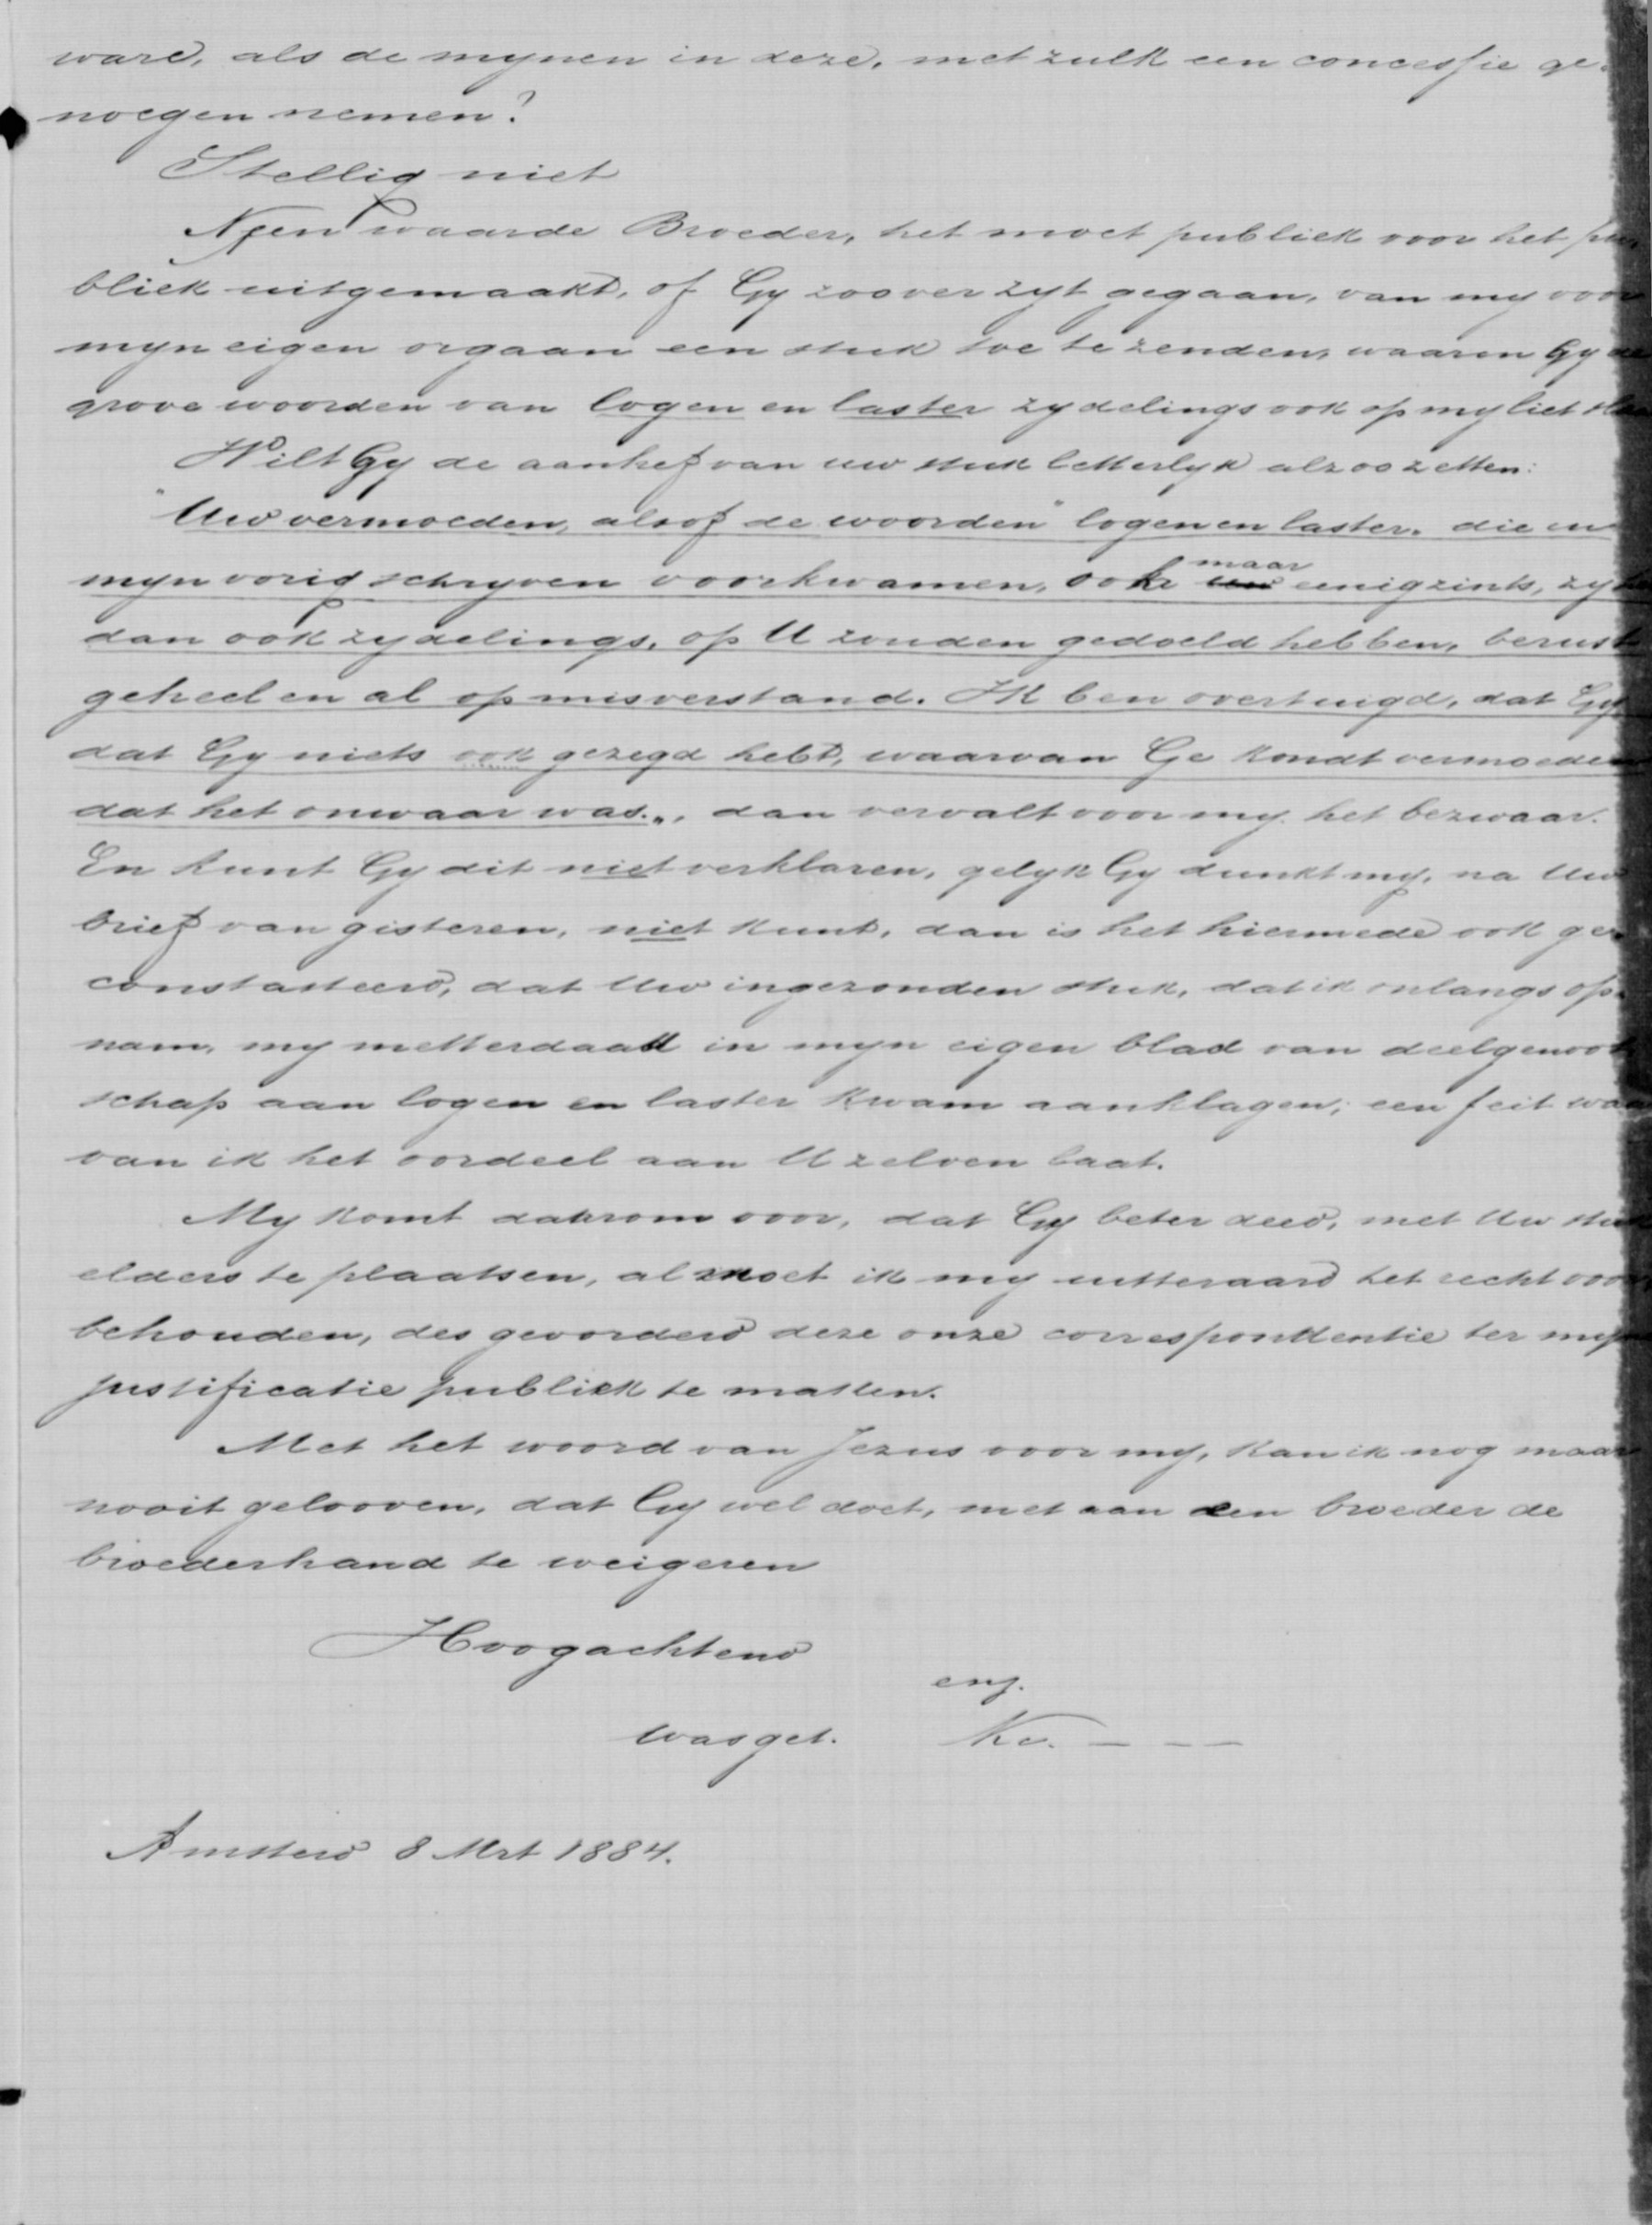 ware, als de mynen in deze, met zulk een concessie ge-
noegen nemen?
Stellig niet
Neen waarde Broeder, het moet publiek voor het pu-
bliek uitgemaakt, of Gy zoover zyt gegaan, van my voor
myn eigen orgaan een stuk toe te zenden, waarin Gy de
grove woorden van logen en laster zydelings ook op my liet
Wilt Gy de aanhef van uw stuk letterlyk alzoo zetten:
"Uw vermoeden, alsof de woorden "logen en laster" die in
myn vorig schryven voorkwamen, ook maar eenigzints, zy
dan ook zydelings, op U zouden gedoeld hebben, berust
geheel en al op misverstand. Ik ben overtuigd, dat Gy
dat Gy niets ook gezegd hebt, waarvan Ge kondt vermoeden
dat het onwaar was.", dan vervalt voor my het bezwaar.
En kunt Gy dit niet verklaren, gelyk Gy dunkt my, na Uw
brief van gisteren, niet kunt, dan is het hiermede ook ge-
constateerd, dat Uw ingezonden stuk, dat ik onlangs op-
nam, my metterdaad in myn eigen blad van deelgenoot
schap aan logen en laster kwam aanklagen; een feit waar
van ik het oordeel aan U zelven laat.
My komt daarom voor, dat Gy beter deed, met Uw stuk
elders te plaatsen, al moet ik my uitteraard het recht voor
behouden, des gevorderd deze onze correspondentie ter myn
justificatie publiek te maken.
Met het woord van Jezus voor my, kan ik nog maar
nooit gelooven, dat Gy wel doet, met aan den broeder de
broederhand te weigeren
Hoogachtend
enz.
was get. Ku. – – –
Amsterd 8 Mrt 1884.